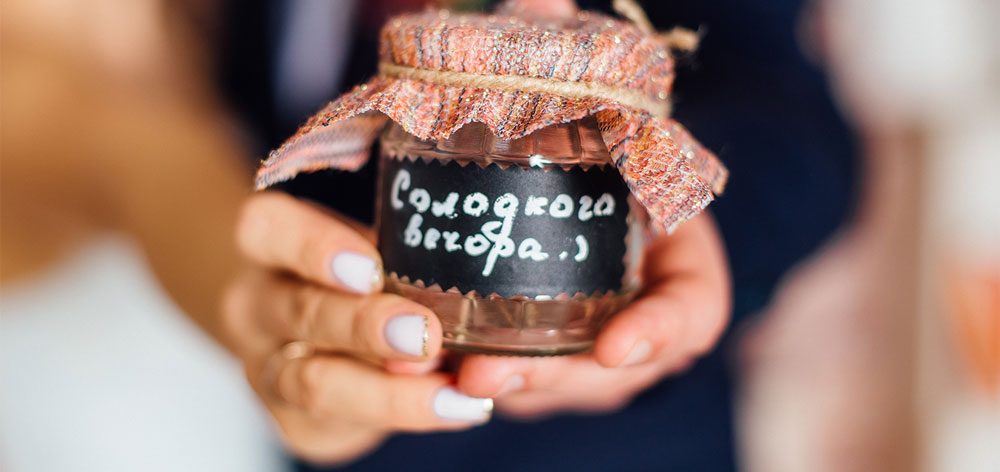 Солодкого
вечора.)